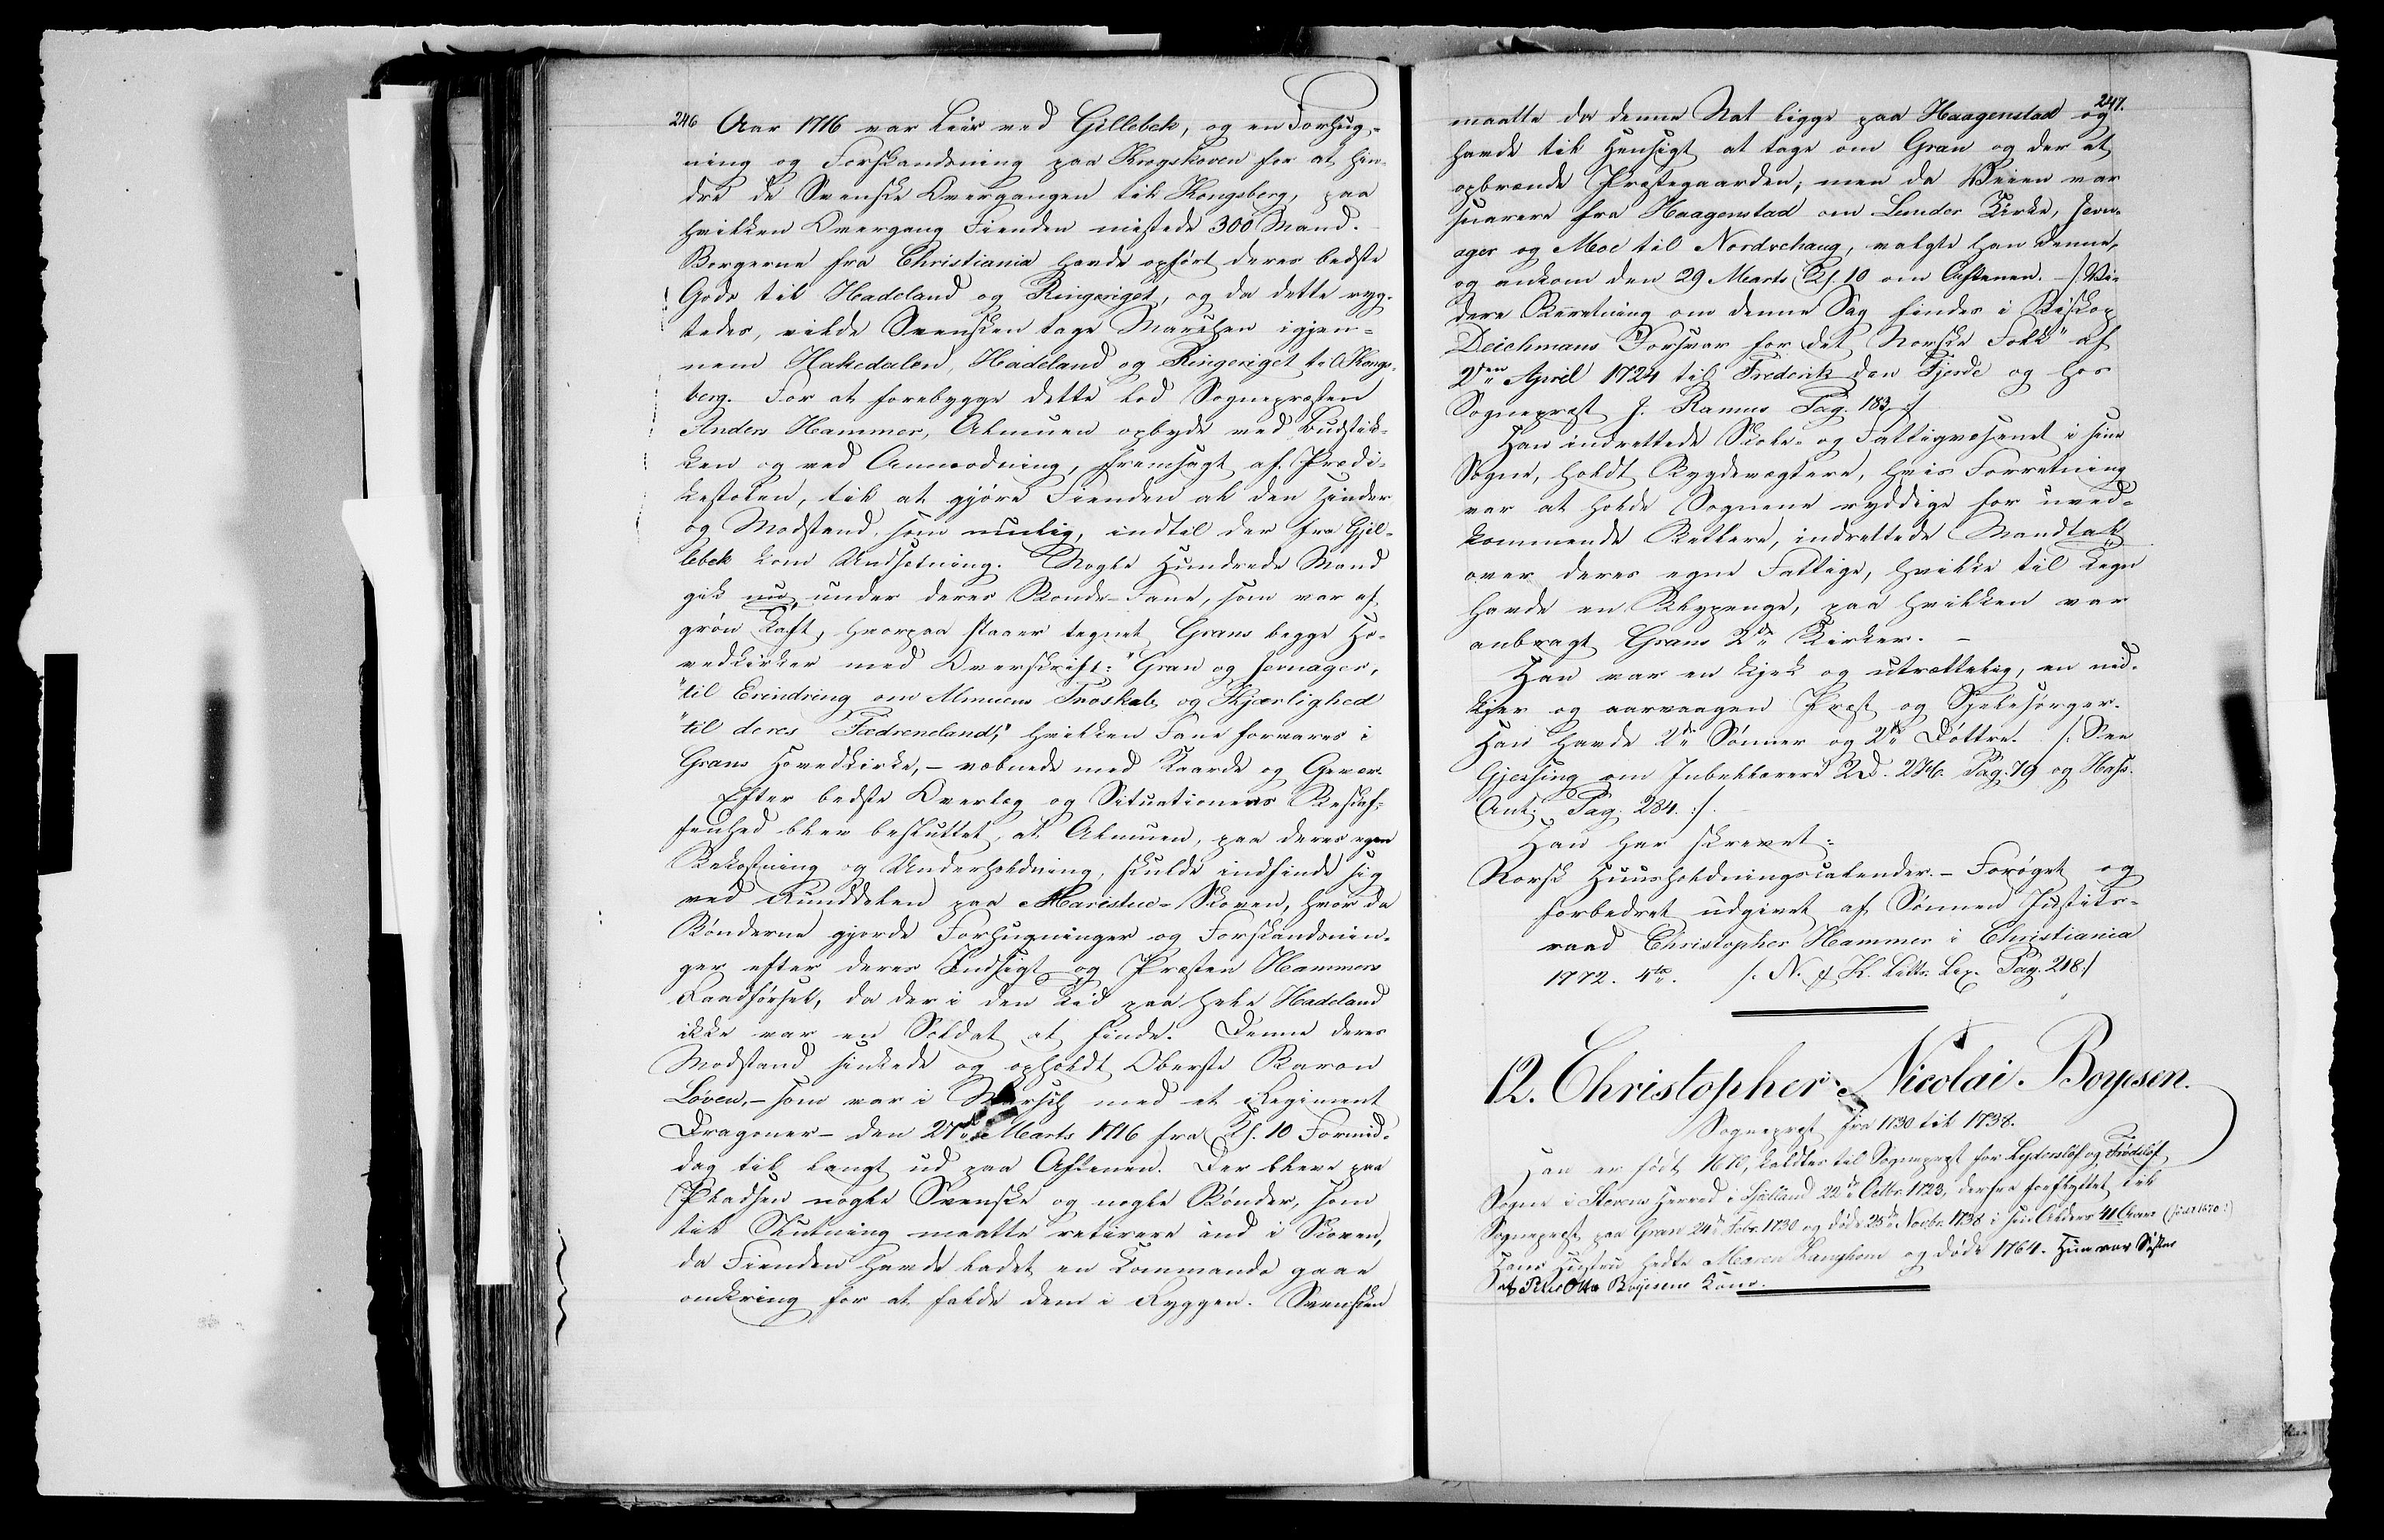 246 Aar 1716 var Leir ved Gillebek, og en Forhug-
ning og Forskandsning paa Krogskoven for at hin-
dre de Svenske Overgangen til Kongsberg, paa
hvilken Overgang Fienden mistede 300 Mand.
Borgerne fra Christiania havde opført deres bedste
Gods til Hadeland og Ringeriget, og da dette ryg-
tedes, vilde Svensken tage Marschen igjen-
nem Hakedalen, Hadeland og Ringeriget til Kongs-
berg. For at forebygge dette lod Sognepræsten
Anders Hammer, Almuen opbyde ved Budstik-
ken og ved Anmodning, fremsagt af Prædi-
kestolen, til at gjøre Fienden al den Hinder
og Modstand som mulig, indtil der fra Gjel-
lebek kom Undsetning. Nogle Hundrede Mand
gik nu under deres Bonde-Fane, som var af
grøn Taft, hvorpaa staaer tegnet Grans begge Ho-
vedkirker med Overskrift: "Gran og Jevnager,
"til Erindring om Almuens Troskab, og Kjærlighed
"til deres Fædreneland," hvilken Fane forvares i
Grans Hovedkirke, - væbnede med Kaarde og Gevær.
Efter bedste Overlæg og Situationens Beskaf-
fenhed blev besluttet, at Almuen, paa deres egen
Bekostning og Underholdning, skulde indfinde sig
ved Runddelen paa Harestue-Skoven, hvor da
Bønderne gjorde Forhugninger og Forskandsnin-
ger efter deres Indsigt og Præsten Hammers
Raadførsel, da der i den Tid paa hele Hadeland
ikke var en Soldat at finde. Denne deres
Modstand sinkede og opholdt Oberste Baron
Løven, - som var i Marsch med et Regiment
Dragoner - den 27de Marts 1716 fra Kl. 10 Formid-
dag til langt ud paa Aftenen. Der bleve paa
Pladsen nogle Svenske og nogle Bønder, som
til Slutning maatte retirere ind i Skoven,
da Fienden havde ladet en Commando gaae
omkring for at falde dem i Ryggen. Svensken
247.
maatte da denne Nat ligge paa Haagenstad og
havde til Hensigt at tage om Gran og der at
opbrænde Præstegaarden; men da Veien var
snarere fra Haagenstad om Lunder Kirke, Jevn-
ager og Moe til Nordrehaug, valgte han denne,
og ankom den 29 Marts Kl. 10 om Aftenen. - /: Vi-
dere Beretning om denne Sag findes i Biskop
Deichmans "Forsvar for det Norske Folk" af
2den April 1724 til Frederik den Fjerde og hos
Sognepræst J. Ramus Pag. 183 :/
Han indrettede Skole- og Fattigvæsenet i sine
Sogne, holdt Bygdevægtere, hvis Forretning
var at holde Sognene ryddige for uved-
kommende Betlere, indrettede Mandtal
over deres egne Fattige, hvilke til Tegn
havde en Blypenge, paa hvilken var
anbragt Grans 2de Kirker. -
Han var en kjek og utrættelig, en nid-
kjær og aarvaagen Præst og Sjelesørger.
Han havde 2de Sønner og 2de Døttre. /: See
Gjessing om Jubellærere 2 D. Pag. 79 og
Ant. Pag. 284. :/
Han har skrevet:
Norsk Huusholdningscalender. - Forøget og
forbedret udgivet af Sønnen Justits-
raad Christopher Hammer i Christiania
1772. 4to. /: N. & K. Litts. Lex. Pag. 218 :/
12. Christopher Nicolai Boyesen.
Sognepræst fra 1730 til 1738.
Han er født 1670, kaldtes til Sognepræst for Lyderslöf og Frødslöf
Sogne i Stevens Herred i Sjælland 22de Octbr. 1723, derfra forflyttet til
Sognepræst paa Gran 24de Febr. 1730 og døde 25de Novbr. 1738 i sin Alders 41 Aar (født 1670:)
Hans Hustru hedte Maren Langhorn og døde 1764. Hun var Søster
af Peter Otto Boyesens Kone.